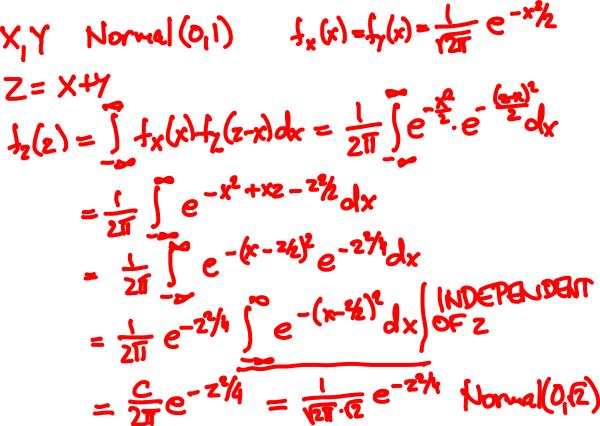 X, Y Normal(0,1) f_X(x) = f_Y(x) = 1/√(2π) e^(-x²/2)
Z = X+Y
f_Z(z) = ∫_{-∞}^{∞} f_X(x) f_Y(z-x) dx = 1/(2π) ∫_{-∞}^{∞} e^(-x²/2) · e^(-(z-x)²/2) dx
= 1/(2π) ∫_{-∞}^{∞} e^(-x² + xz - z²/2) dx
= 1/(2π) ∫_{-∞}^{∞} e^(-(x - z/2)²) e^(-z²/4) dx
= 1/(2π) e^(-z²/4) ∫_{-∞}^{∞} e^(-(x-z/2)²) dx | INDEPENDENT OF z
= C/(2π) e^(-z²/4) = 1/(√(2π)·√2) e^(-z²/4) Normal(0,√2)